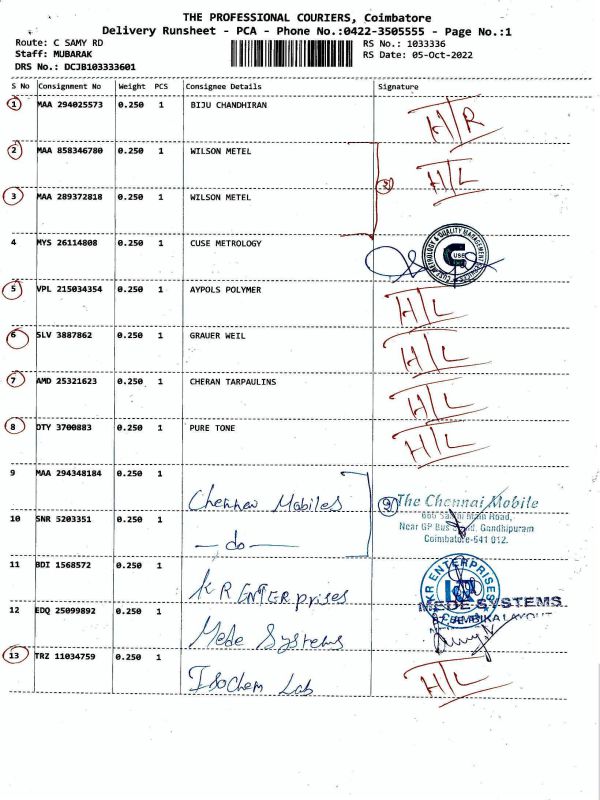 THE PROFESSIONAL COURIERS, Coimbatore
Delivery Runsheet - PCA - Phone No.:0422-3505555 - Page No.:1
Route: C SAMY RD
RS No.: 1033336
Staff: MUBARAK
RS Date: 05-Oct-2022
DRS No.: DCJB103333601
S No Consignment No Weight PCS Consignee Details Signature
1 MAA 294025573 0.250 1 BIJU CHANDHIRAN H/R
2 MAA 858346780 0.250 1 WILSON METEL H/L
3 MAA 289372818 0.250 1 WILSON METEL
4 MYS 26114808 0.250 1 CUSE METROLOGY
5 VPL 215034354 0.250 1 AYPOLS POLYMER H/L
6 SLV 3887862 0.250 1 GRAUER WEIL H/L
7 AMD 25321623 0.250 1 CHERAN TARPAULINS H/L
8 OTY 3700883 0.250 1 PURE TONE H/L
9 MAA 294348184 0.250 1 Chennai Mobiles
The Chennai Mobile
Road,
10 SNR 5203351 0.250 1 — do —
Near GP Bus Gandhipuram
Coimbatore-641 012.
11 BDI 1568572 0.250 1 KR ENTERprises
KR ENTERPRISES
12 EDQ 25099892 0.250 1 Mede Systems
MEDE SYSTEMS
13 TRZ 11034759 0.250 1 Isochem Lab H/L